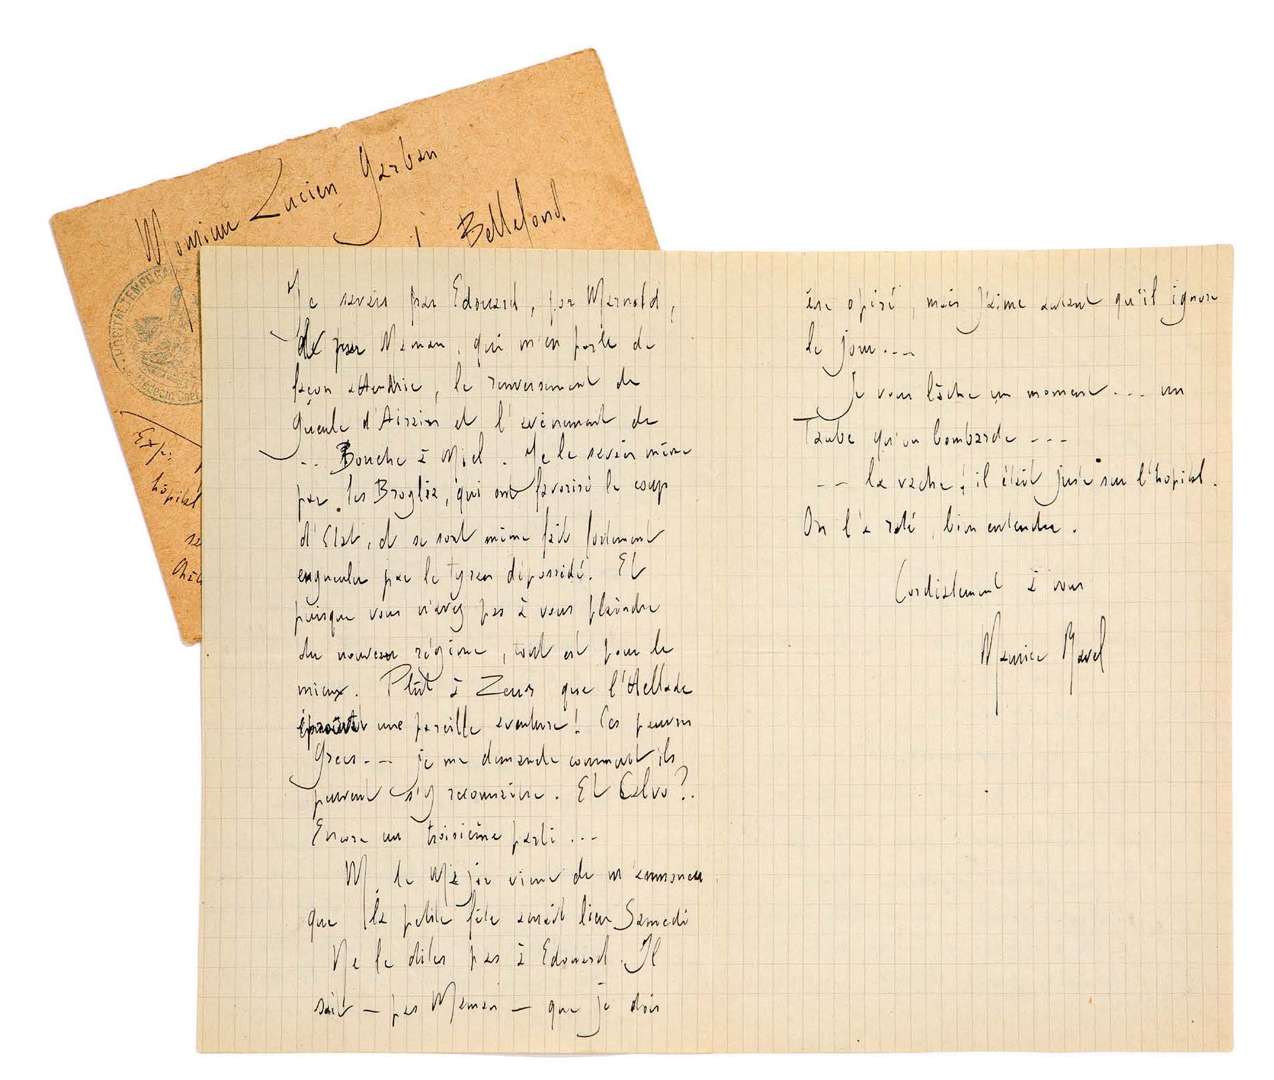 Monsieur Lucien Garban
à Bellefond
HOPITAL TEMPORAIRE
Le Médecin Chef
Exp:
hôpital
Je savais par Edouard, par Marnold,
par Maman, qui m'en parle de
façon attendrie, le renversement de
Gueule d'Airain et l'avènement de
... Bouche à Miel. Je le savais même
par les Broglia, qui ont favorisé le coup
d'Etat, et se sont même fait fortement
engueuler par le tyran dépossédé. Et
puisque vous n'avez pas à vous plaindre
du nouveau régime, tout est pour le
mieux. Plût à Zeus que l'Hellade
éprouvât une pareille aventure! Ces pauvres
Grecs... je me demande comment ils
peuvent s'y reconnaître. Et Calvo?.
Encore un troisième parti...
M. le Major vient de m'annoncer
que la petite fête aurait lieu Samedi
Ne le dites pas à Edouard. Il
sait — par Maman — que je dois
être opéré, mais j'aime autant qu'il ignore
le jour...
Je vous lâche un moment... un
Taube qu'on bombarde ...
... la vache! il était juste sur l'hôpital.
On l'a raté, bien entendu.
Cordialement à vous
Maurice Ravel